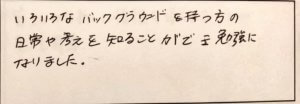 いろいろな バックグラウンドを持つ方の
日常や考えを知ることができ勉強に
なりました。